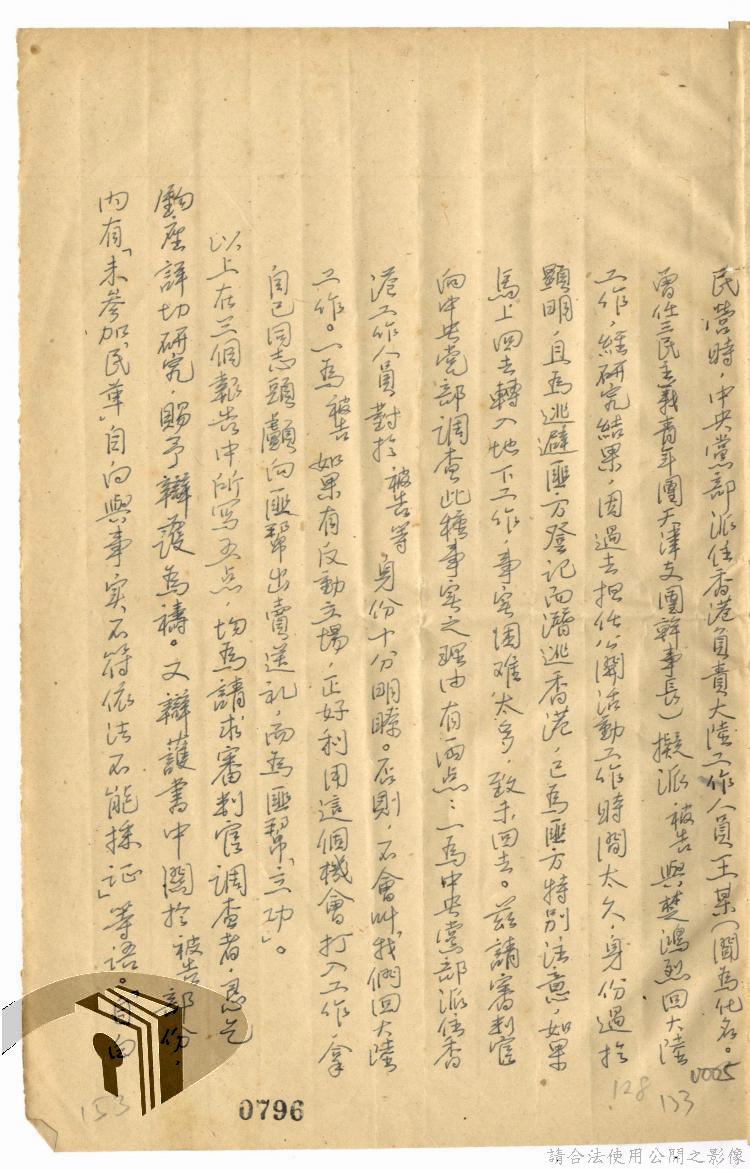 民營時，中央黨部派住香港負責大陸工作人員王某（聞為化名。
曾任三民主義青年團天津支團幹事長）擬派被告與楚鴻烈回大陸
工作，經研究結果，因過去担任公開活動工作時間太久，身份過於
顯明，且為逃避匪方登記而潛逃香港，已為匪方特別注意，如果
馬上回去轉入地下工作，事实困难太多，致未回去。茲請審判官
向中央党部調查此種事实之理由有兩点：一為中央党部派住香
港工作人員對於被告等身份十分明瞭。否則，不會叫我們回大陸
工作。一為被告如果有反動立場，正好利用這個機會打入工作，拿
自己同志頭顱向匪幫出賣送礼，而為匪幫「立功」。
以上在三個報告中所寫五点，均為請求審判官調查者，懇乞
鈞座詳切研究，賜予辯護為禱。又辯護書中關於被告部份，
內有「未參加「民革」自白與事实不符依法不能採証」等語。「自白
0005
128
133
153
0796
請合法使用公開之影像